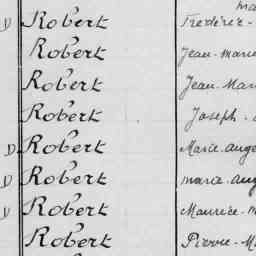 D Robert Frédéric-
Robert Jean-Marie
Robert Jean-Mari
Robert Joseph-
D Robert Marie-ange
D Robert Marie-ang
D Robert Maurice-M
Robert Pierre-M